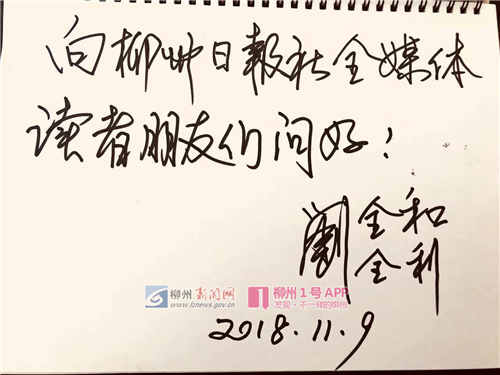 向柳州日報社全媒体
读者朋友们问好！
劉全和
全利
柳州新闻网
www.lznews.gov.cn
柳州1号APP
发现·不一样的柳州
2018.11.9